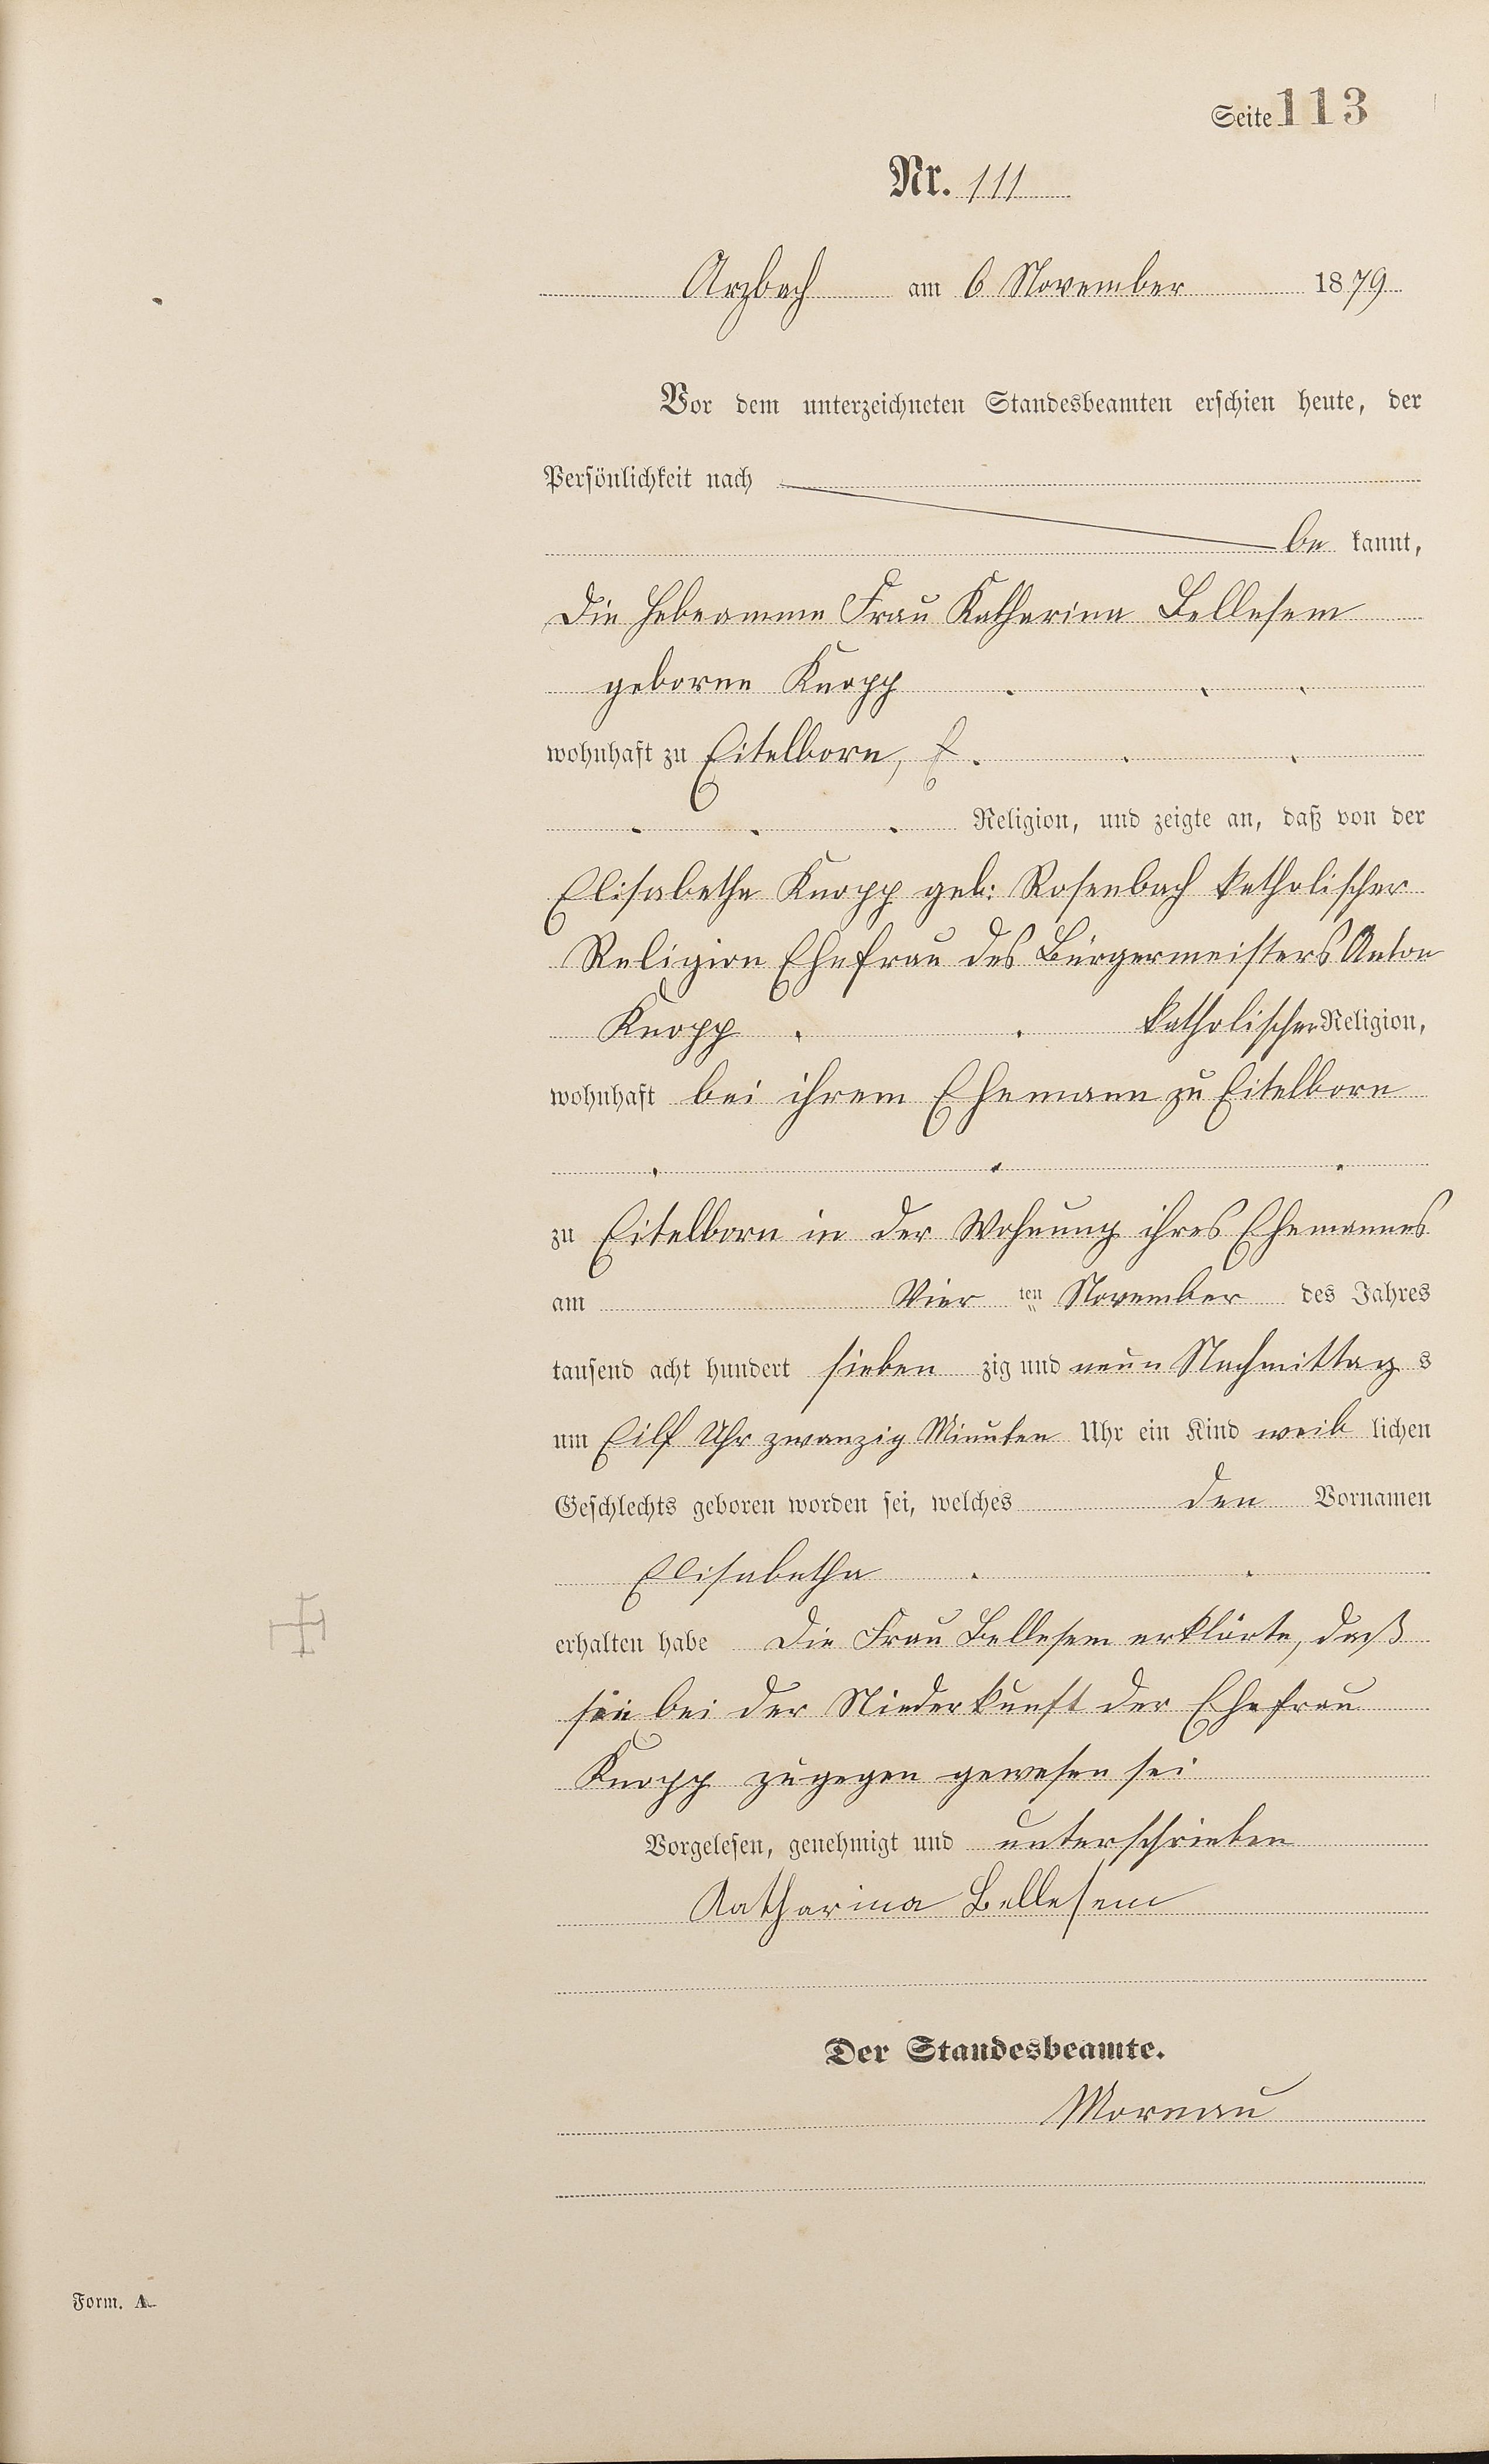 Seite 113
Nr. 111
Arzbach am 6 November 1879
Vor dem unterzeichneten Standesbeamten erschien heute, der
Persönlichkeit nach
be kannt,
Die Hebeamme Frau Katharina Bellesem
geborne Knopp
wohnhaft zu Eitelborn,
Religion, und zeigte an, daß von der
Elisabetha Knopp geb: Rosenbach katholischer
Religion Ehefrau des Bürgermeisters Anton
Knopp katholischer Religion,
wohnhaft bei ihrem Ehemann zu Eitelborn
zu Eitelborn in der Wohnung ihres Ehemannes
am Vier ten November des Jahres
tausend acht hundert sieben zig und neun Nachmittag s
um Eilf Uhr zwanzig Minuten Uhr ein Kind weib lichen
Geschlechts geboren worden sei, welches den Vornamen
Elisabetha
erhalten habe Die Frau Bellesem erklärte, daß
sie bei der Niederkunft der Ehefrau
Knopp zugegen gewesen sei
Vorgelesen, genehmigt und unterschrieben
Katharina Bellesem
Der Standesbeamte.
Mornau
Form. A.